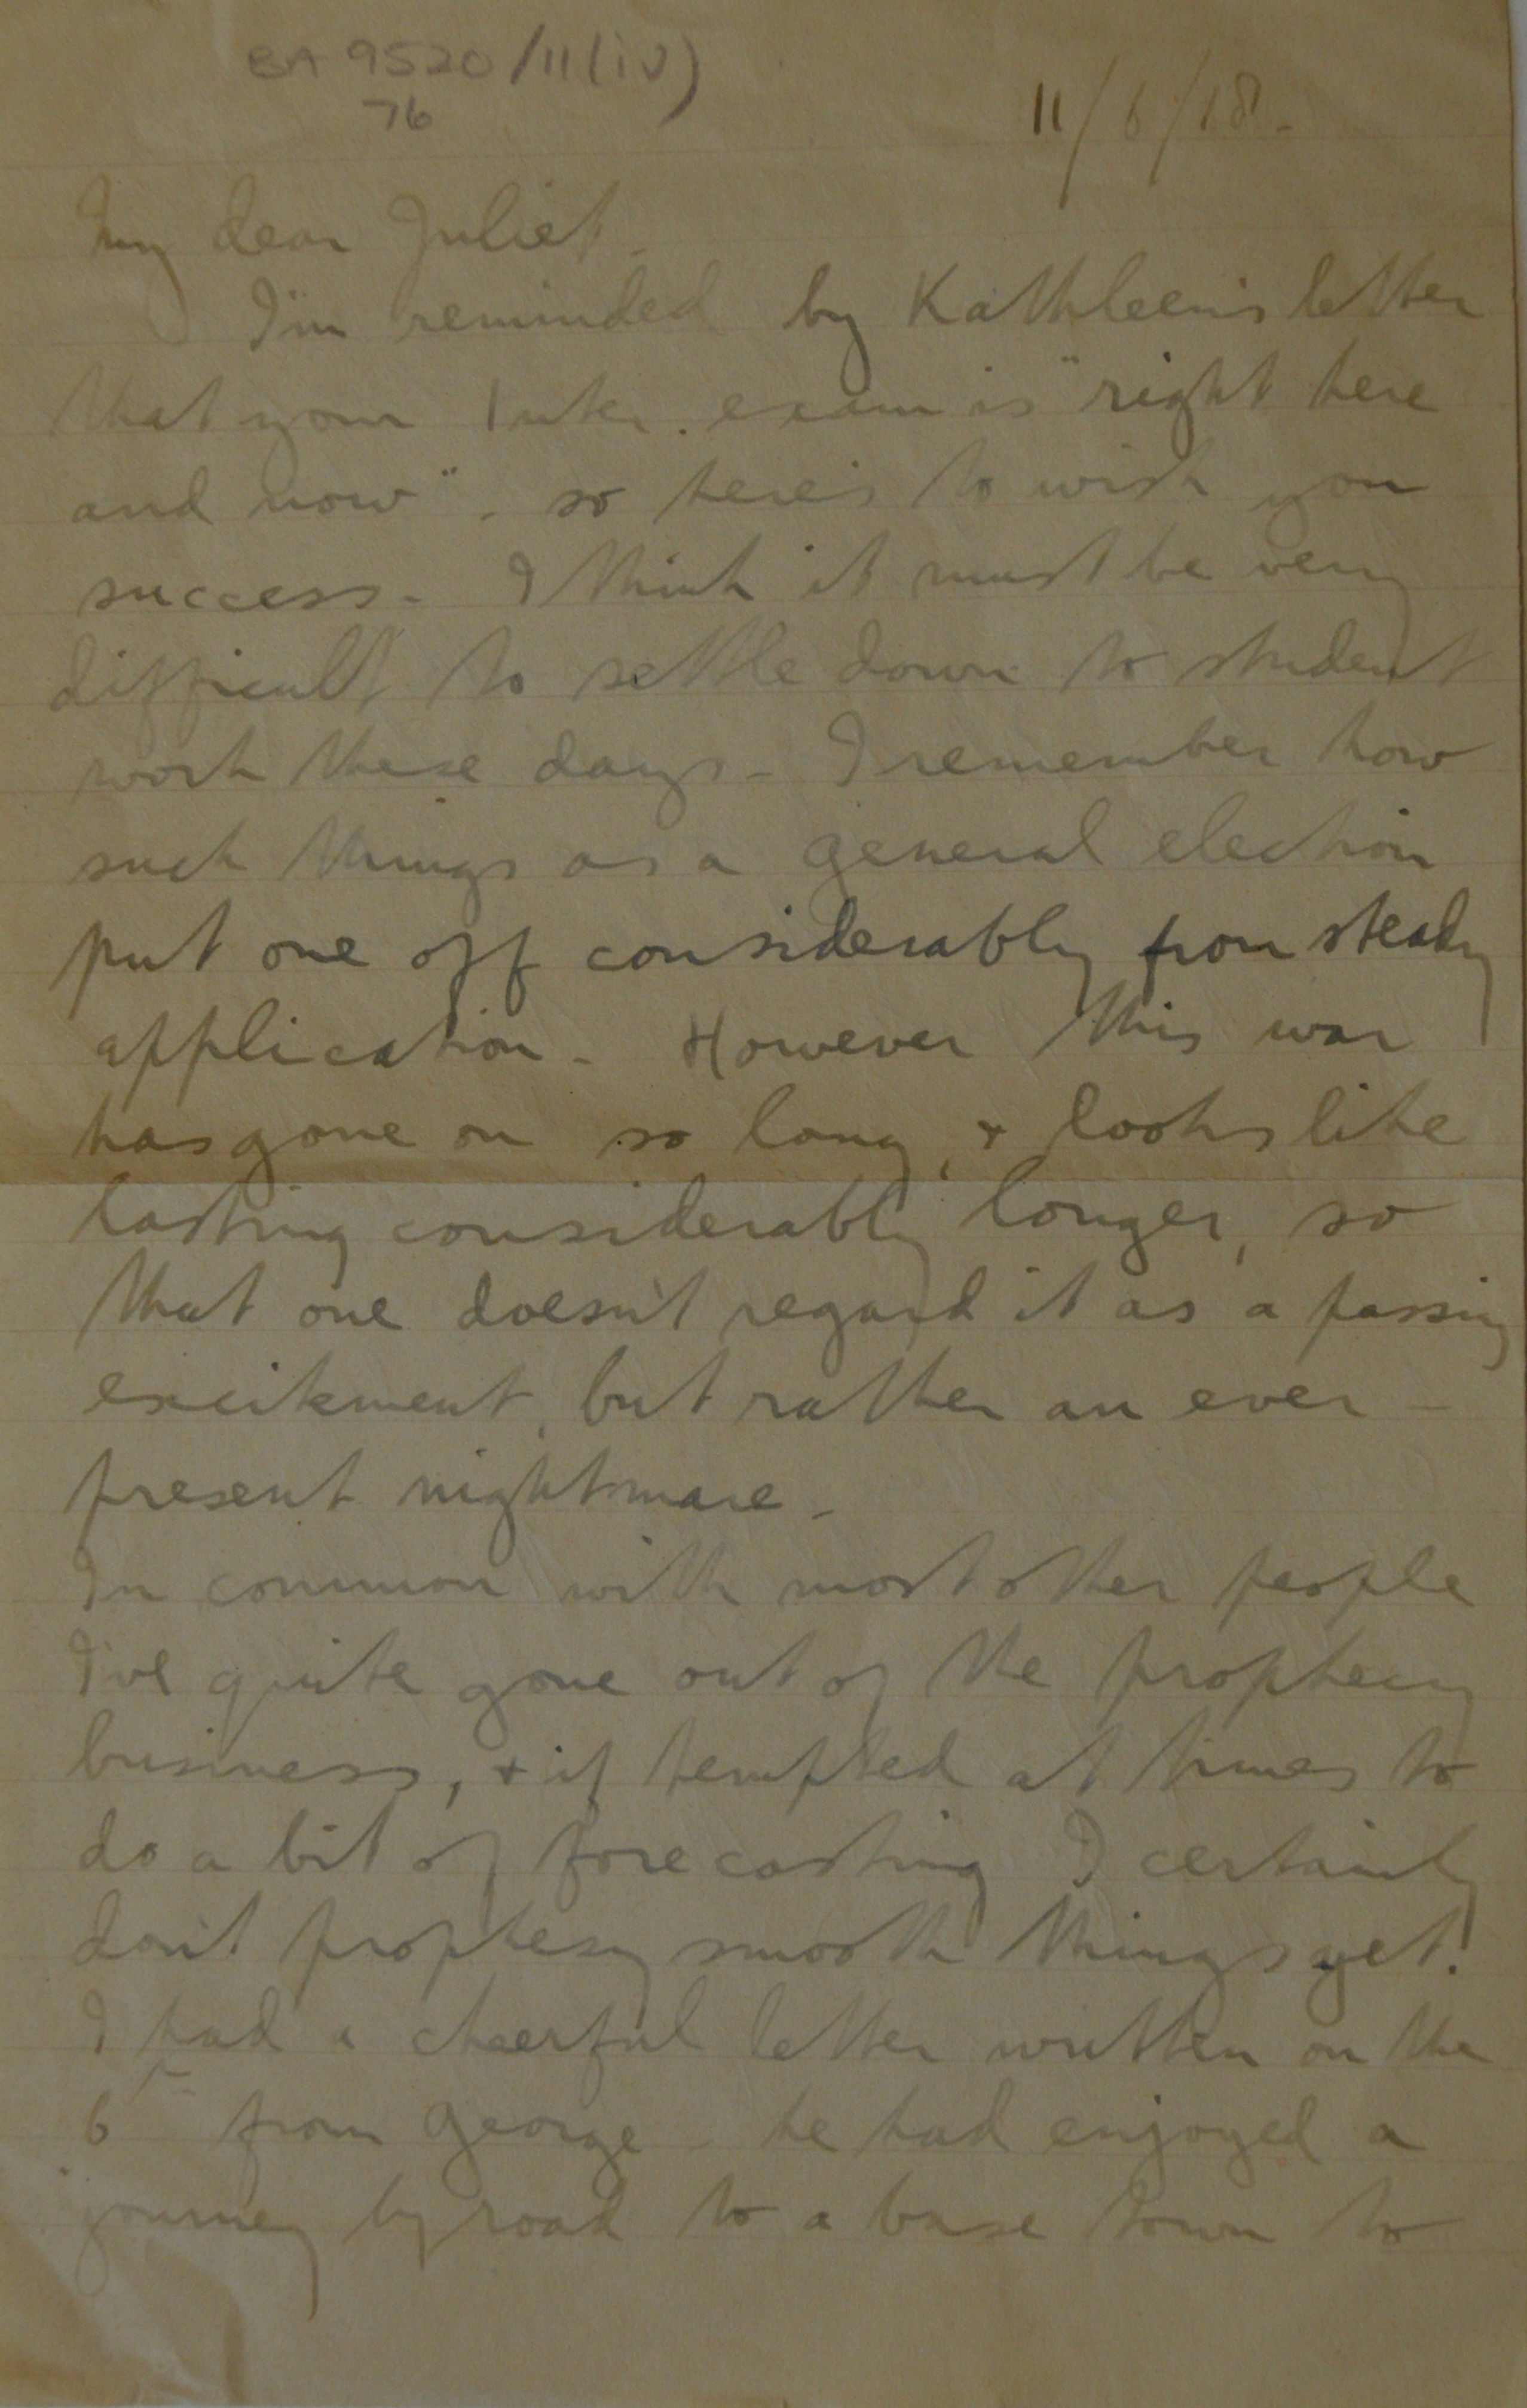 BA 9520/11(iv)
76
11/6/18.
My dear Juliet.
I'm reminded by Kathleen's letter
that your Inter. exam is "right here
and now". so here's to wish you
success. I think it must be very
difficult to settle down to student
work these days. I remember how
such things as a general election
put one off considerably from steady
application. However this war
has gone on so long, & looks like
lasting considerably longer, so
that one doesn't regard it as a passing
excitement, but rather an ever-
present nightmare.
In common with most other people
I've quite gone out of the prophecy
business, & if tempted at times to
do a bit of forecasting I certainly
don't prophesy smooth things yet.
I had a cheerful letter written on the
6th from George - he had enjoyed a
journey by road to a base town to